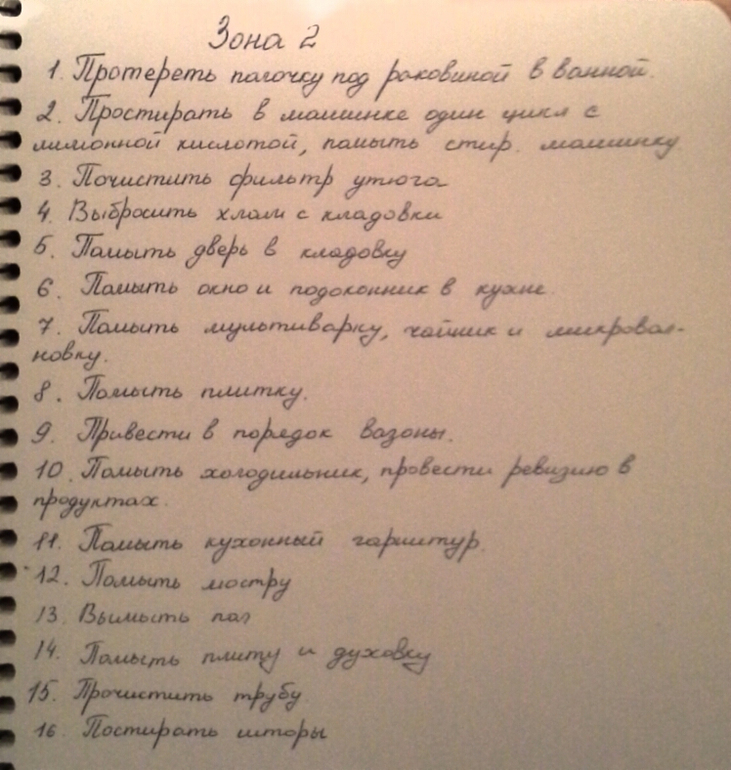 Зона 2
1. Протереть полочку под раковиной в ванной.
2. Простирать в машинке один цикл с
лимонной кислотой, помыть стир. машинку
3. Почистить фильтр утюга
4. Выбросить хлам с кладовки
5. Помыть дверь в кладовку
6. Помыть окно и подоконник в кухне.
7. Помыть мультиварку, чайник и микровол-
новку.
8. Помыть плитку.
9. Привести в порядок вазоны.
10. Помыть холодильник, провести ревизию в
продуктах.
11. Помыть кухонный гарнитур.
12. Помыть люстру
13. Вымыть пол
14. Помыть плиту и духовку
15. Прочистить трубу
16. Постирать шторы